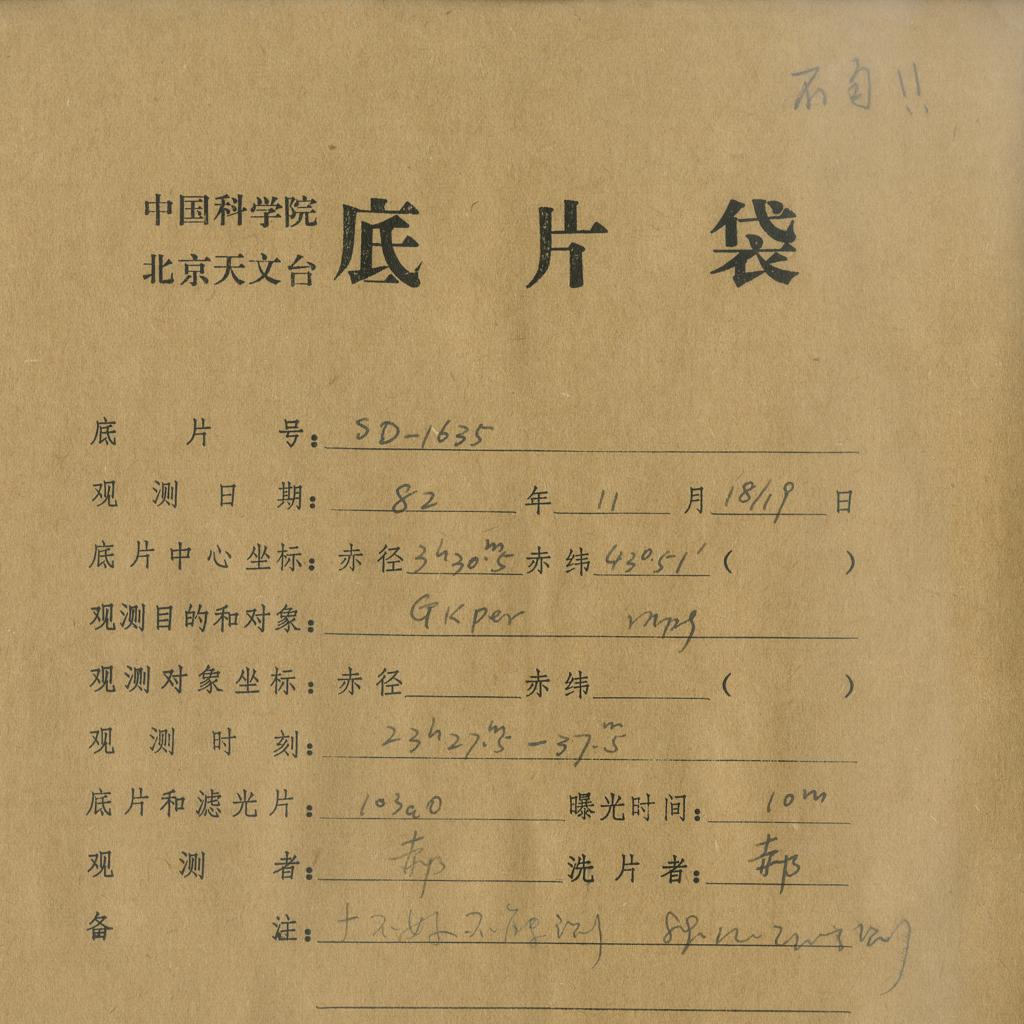 不!!
中国科学院
北京天文台
底片袋
底片号: SD-1635
观测日期: 82年11月18/19日
底片中心坐标: 赤径3h30m.5赤纬43°.51′( )
观测目的和对象: GKper mpg
观测对象坐标: 赤径 赤纬 ( )
观测时刻: 23h27m.5-37m.5
底片和滤光片: 103aO 曝光时间: 10m
观测者: 郝 洗片者: 郝
备注: 不好不